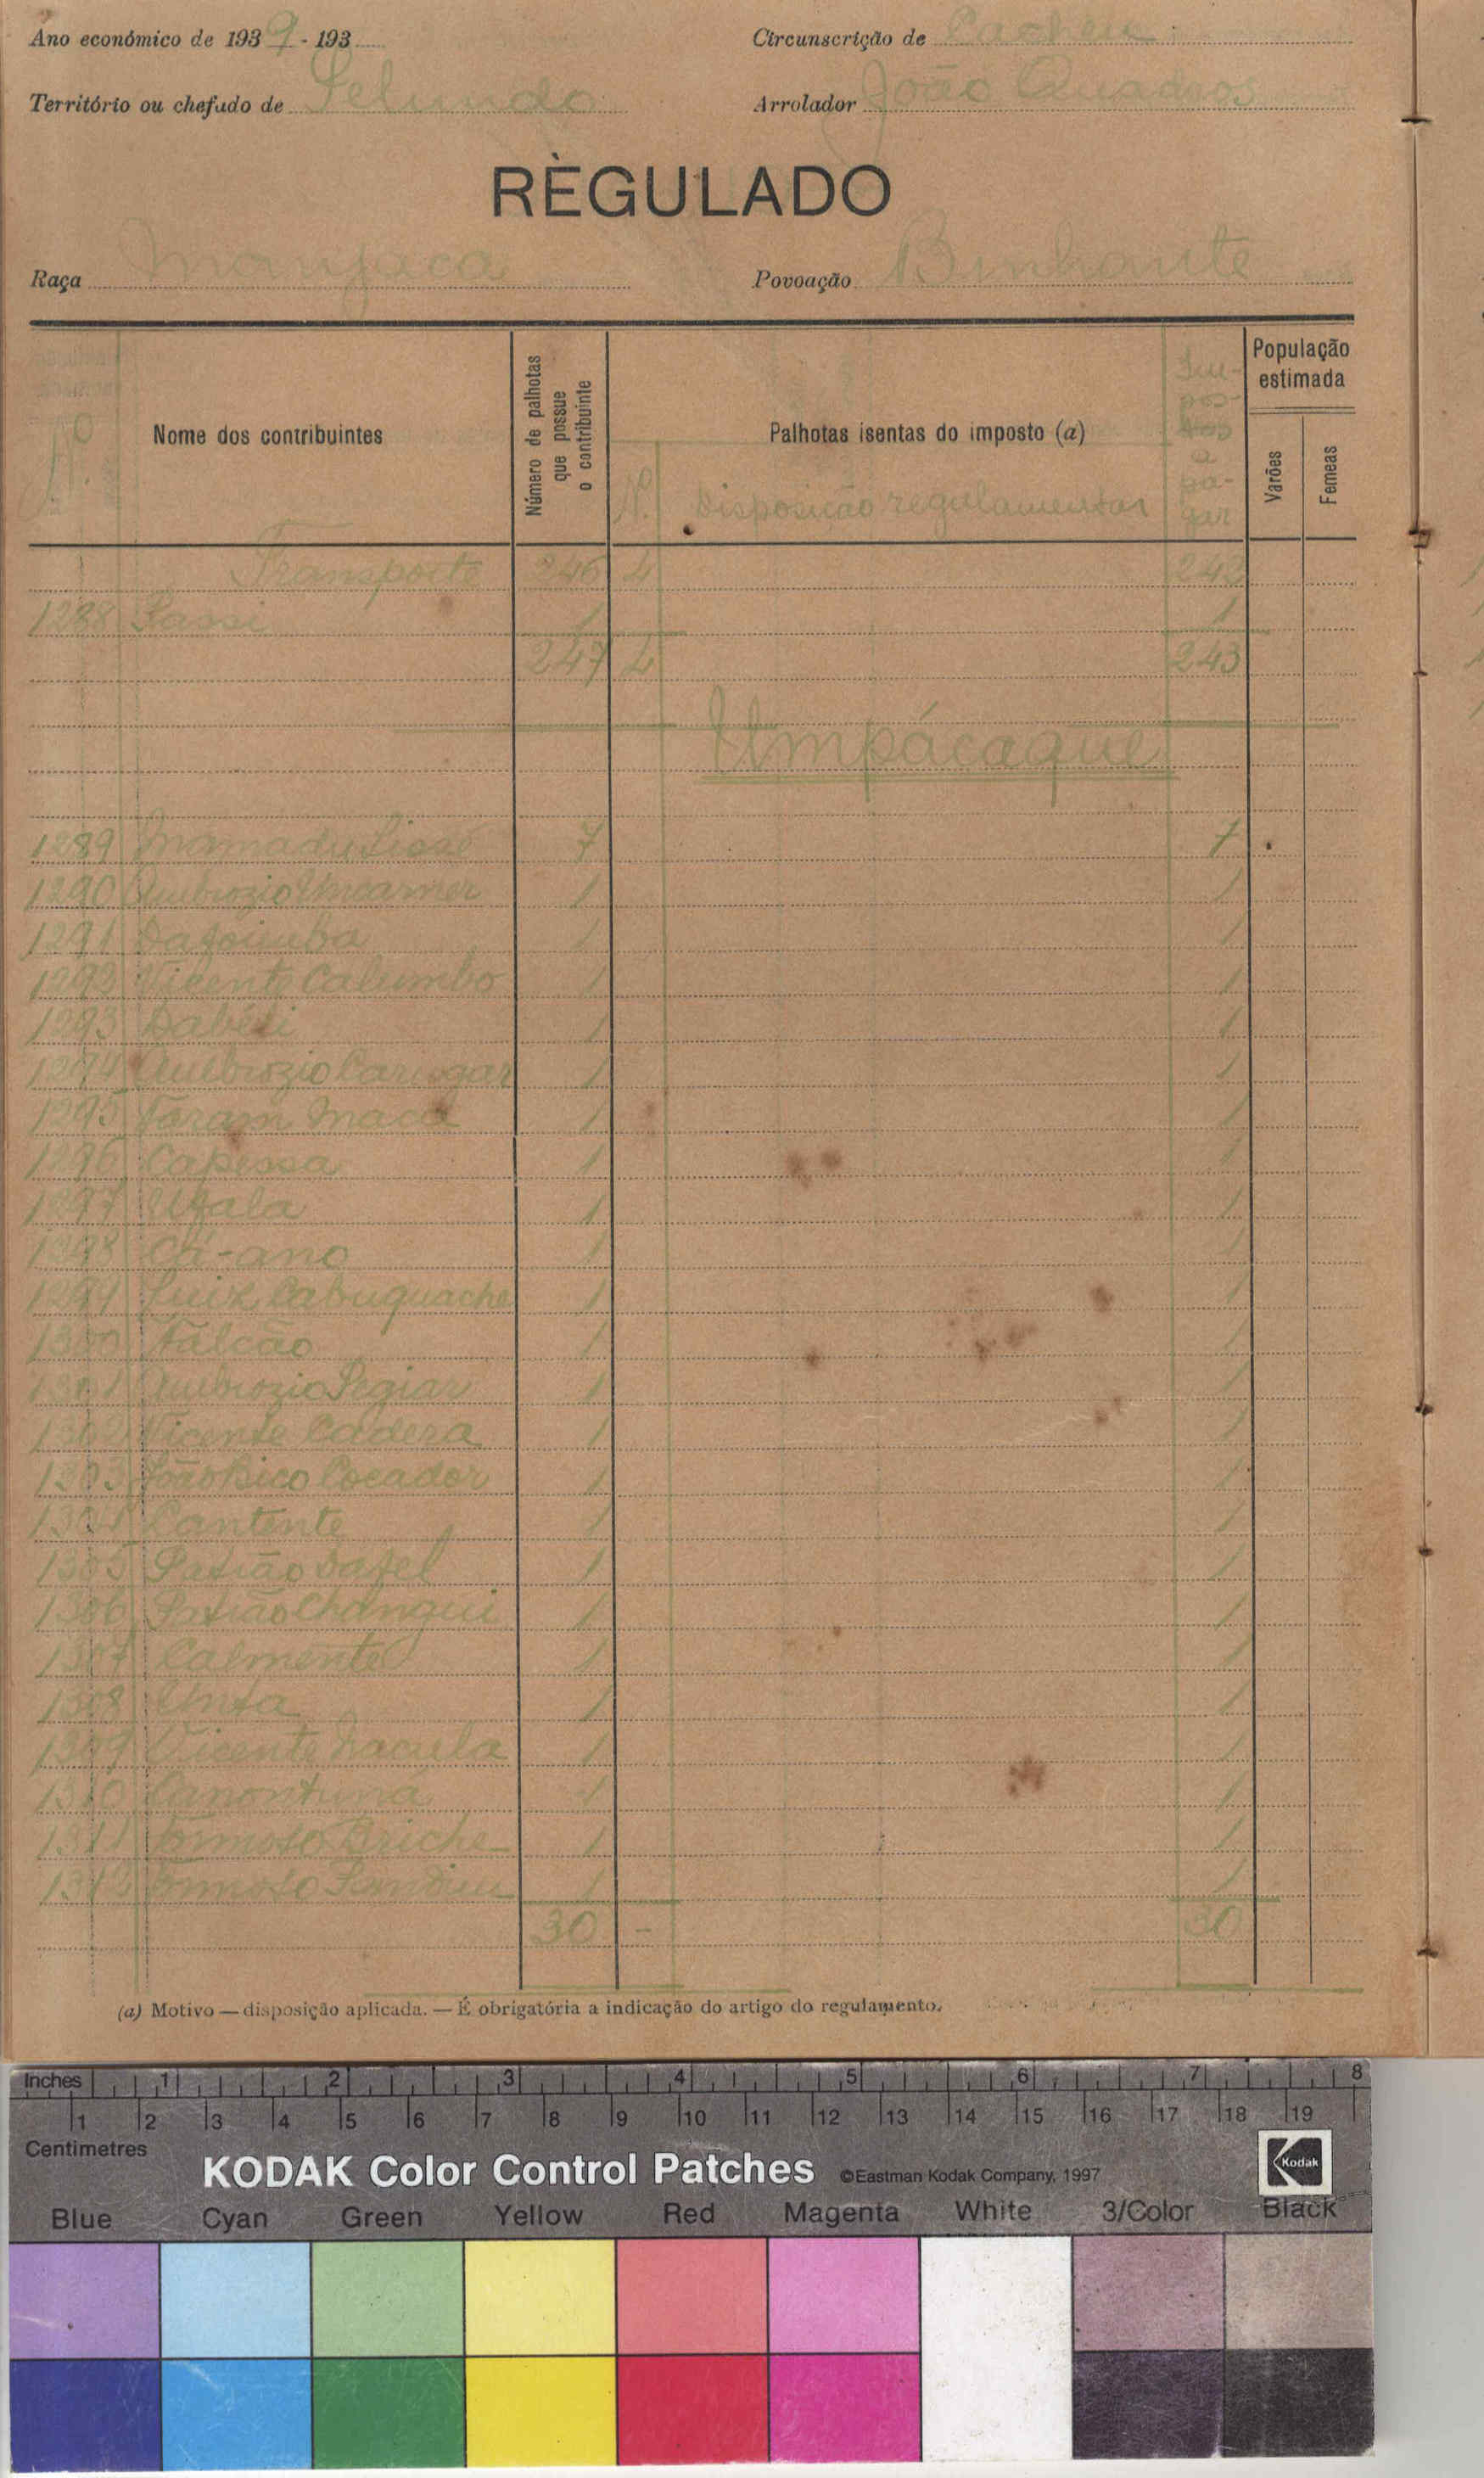 Ano económico de 1939 - 193
Circunscrição de Cacheu
Território ou chefado de Pelundo
Arrolador João Quadros
RÈGULADO
Raça Manjaca
Povoação Binhante
N.º
Nome dos contribuintes
Número de palhotas que possue o contribuinte
Palhotas isentas do imposto (a)
N.º
Disposição regulamentar
Impostos a pagar
População estimada
Varões
Femeas
Transporte 246 4 242
1288 Sassi 1 1
247 4 243
Umpácaque
1289 Mamadu Sissé 7 7
1290 Ambrozio 1 1
1291 1 1
1292 Vicente Calumbo 1 1
1293 1 1
1294 Ambrozio 1 1
1295 1 1
1296 Capessa 1 1
1297 Ufala 1 1
1298 Cá-ano 1 1
1299 Luiz Cabuquache 1 1
1300 Falcão 1 1
1301 Ambrozio Segiar 1 1
1302 Vicente Cadera 1 1
1303 João Bico Cocador 1 1
1304 Cantente 1 1
1305 Patrão Dafel 1 1
1306 Patrão Changui 1 1
1307 Calmente 1 1
1308 Unta 1 1
1309 Vicente Nacula 1 1
1310 Canontuna 1 1
1311 Briche 1 1
1312 1 1
30 - 30
(a) Motivo — disposição aplicada. — É obrigatória a indicação do artigo do regulamento.
Inches 1 2 3 4 5 6 7 8
1 2 3 4 5 6 7 8 9 10 11 12 13 14 15 16 17 18 19
Centimetres
KODAK Color Control Patches ©Eastman Kodak Company, 1997 Kodak
Blue Cyan Green Yellow Red Magenta White 3/Color Black